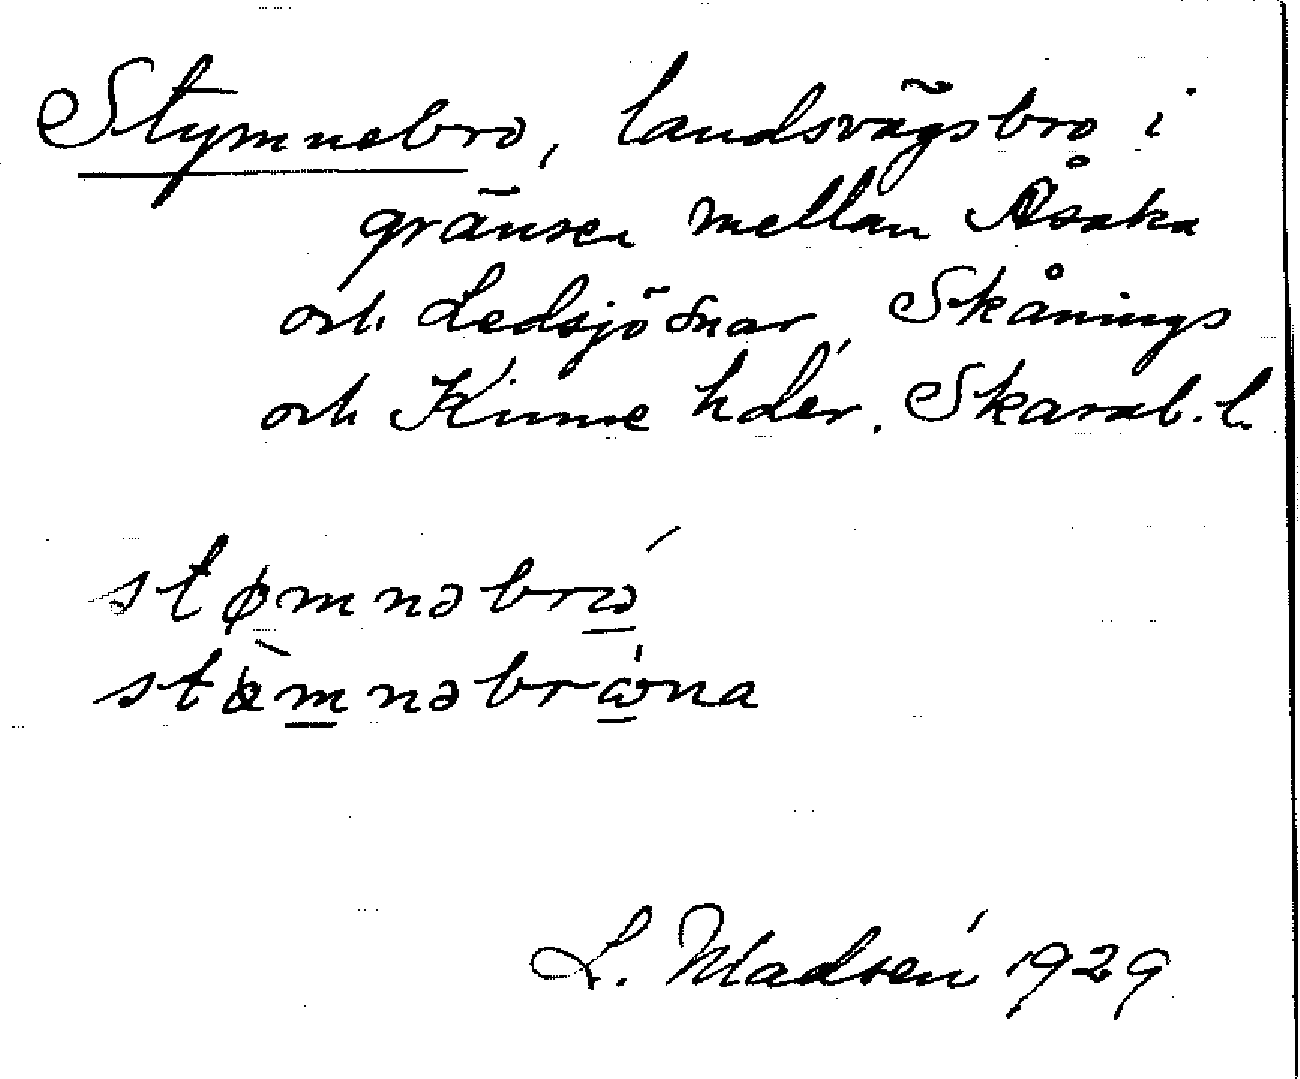 Stymnebro, landsvägsbro i
gränsen mellan Åsaka
och Ledsjö snar, Skånings
och Kinne hder. Skarab. l.
stømnəbrω
stømnəbrωna
L. Madsén 1929